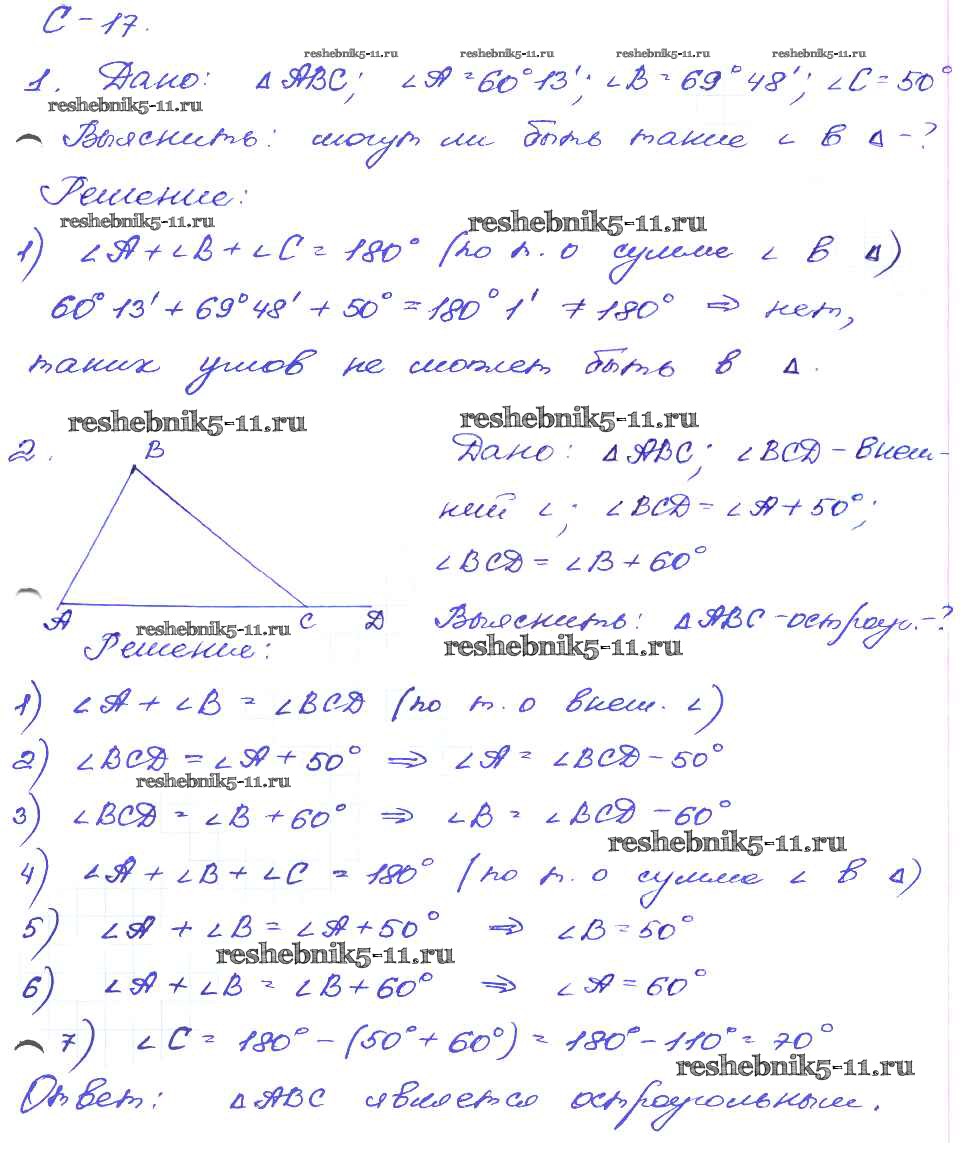 С-17.
reshebnik5-11.ru reshebnik5-11.ru reshebnik5-11.ru reshebnik5-11.ru
1. Дано: △ABC; ∠A=60°13′; ∠B=69°48′; ∠C=50°
reshebnik5-11.ru
Выяснить: могут ли быть такие ∠ в △-?
Решение:
reshebnik5-11.ru reshebnik5-11.ru
1) ∠A+∠B+∠C=180° (по т. о сумме ∠ в △)
60°13′+69°48′+50°=180°1′≠180° ⇒ нет,
таких углов не может быть в △.
reshebnik5-11.ru reshebnik5-11.ru
2.
B
A
C
D
Дано: △ABC; ∠BCD-внеш-
ний ∠; ∠BCD=∠A+50°;
∠BCD=∠B+60°
Выяснить: △ABC-остроуг.-?
reshebnik5-11.ru reshebnik5-11.ru
Решение:
1) ∠A+∠B=∠BCD (по т. о внеш. ∠)
2) ∠BCD=∠A+50° ⇒ ∠A=∠BCD-50°
reshebnik5-11.ru
3) ∠BCD=∠B+60° ⇒ ∠B=∠BCD-60°
reshebnik5-11.ru
4) ∠A+∠B+∠C=180° (по т. о сумме ∠ в △)
5) ∠A+∠B=∠A+50° ⇒ ∠B=50°
reshebnik5-11.ru
6) ∠A+∠B=∠B+60° ⇒ ∠A=60°
7) ∠C=180°-(50°+60°)=180°-110°=70°
reshebnik5-11.ru
Ответ: △ABC является остроугольным.